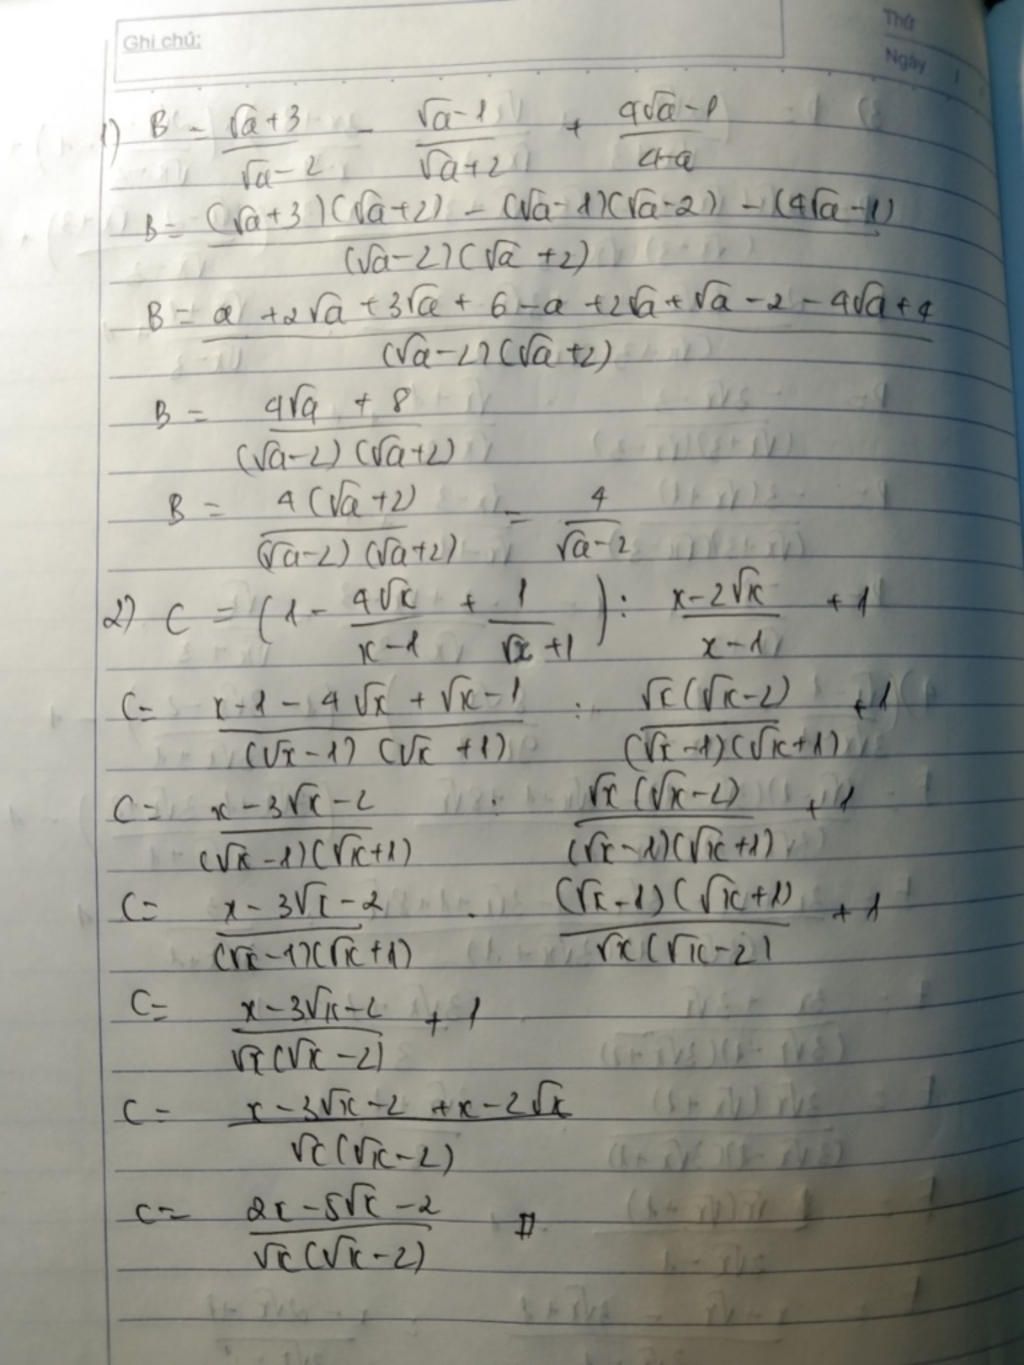 Ghi chú:
Thứ
Ngày /
1) B = (√a+3)/(√a-2) - (√a-1)/(√a+2) + (4√a-1)/(4-a)
B = ((√a+3)(√a+2) - (√a-1)(√a-2) - (4√a-1))/((√a-2)(√a+2))
B = (a +2√a +3√a + 6 -a +2√a +√a -2 -4√a +4)/((√a-2)(√a+2))
B = (4√a + 8)/((√a-2)(√a+2))
B = (4(√a+2))/((√a-2)(√a+2)) = 4/(√a-2)
2) C = (1 - (4√x)/(x-1) + 1/(√x+1)) : (x-2√x)/(x-1) + 1
C = (x-1-4√x+√x-1)/((√x-1)(√x+1)) : (√x(√x-2))/((√x-1)(√x+1)) +1
C = (x-3√x-2)/((√x-1)(√x+1)) : (√x(√x-2))/((√x-1)(√x+1)) +1
C = (x-3√x-2)/((√x-1)(√x+1)) . ((√x-1)(√x+1))/(√x(√x-2)) +1
C = (x-3√x-2)/(√x(√x-2)) + 1
C = (x-3√x-2 +x-2√x)/(√x(√x-2))
C = (2x-5√x-2)/(√x(√x-2))